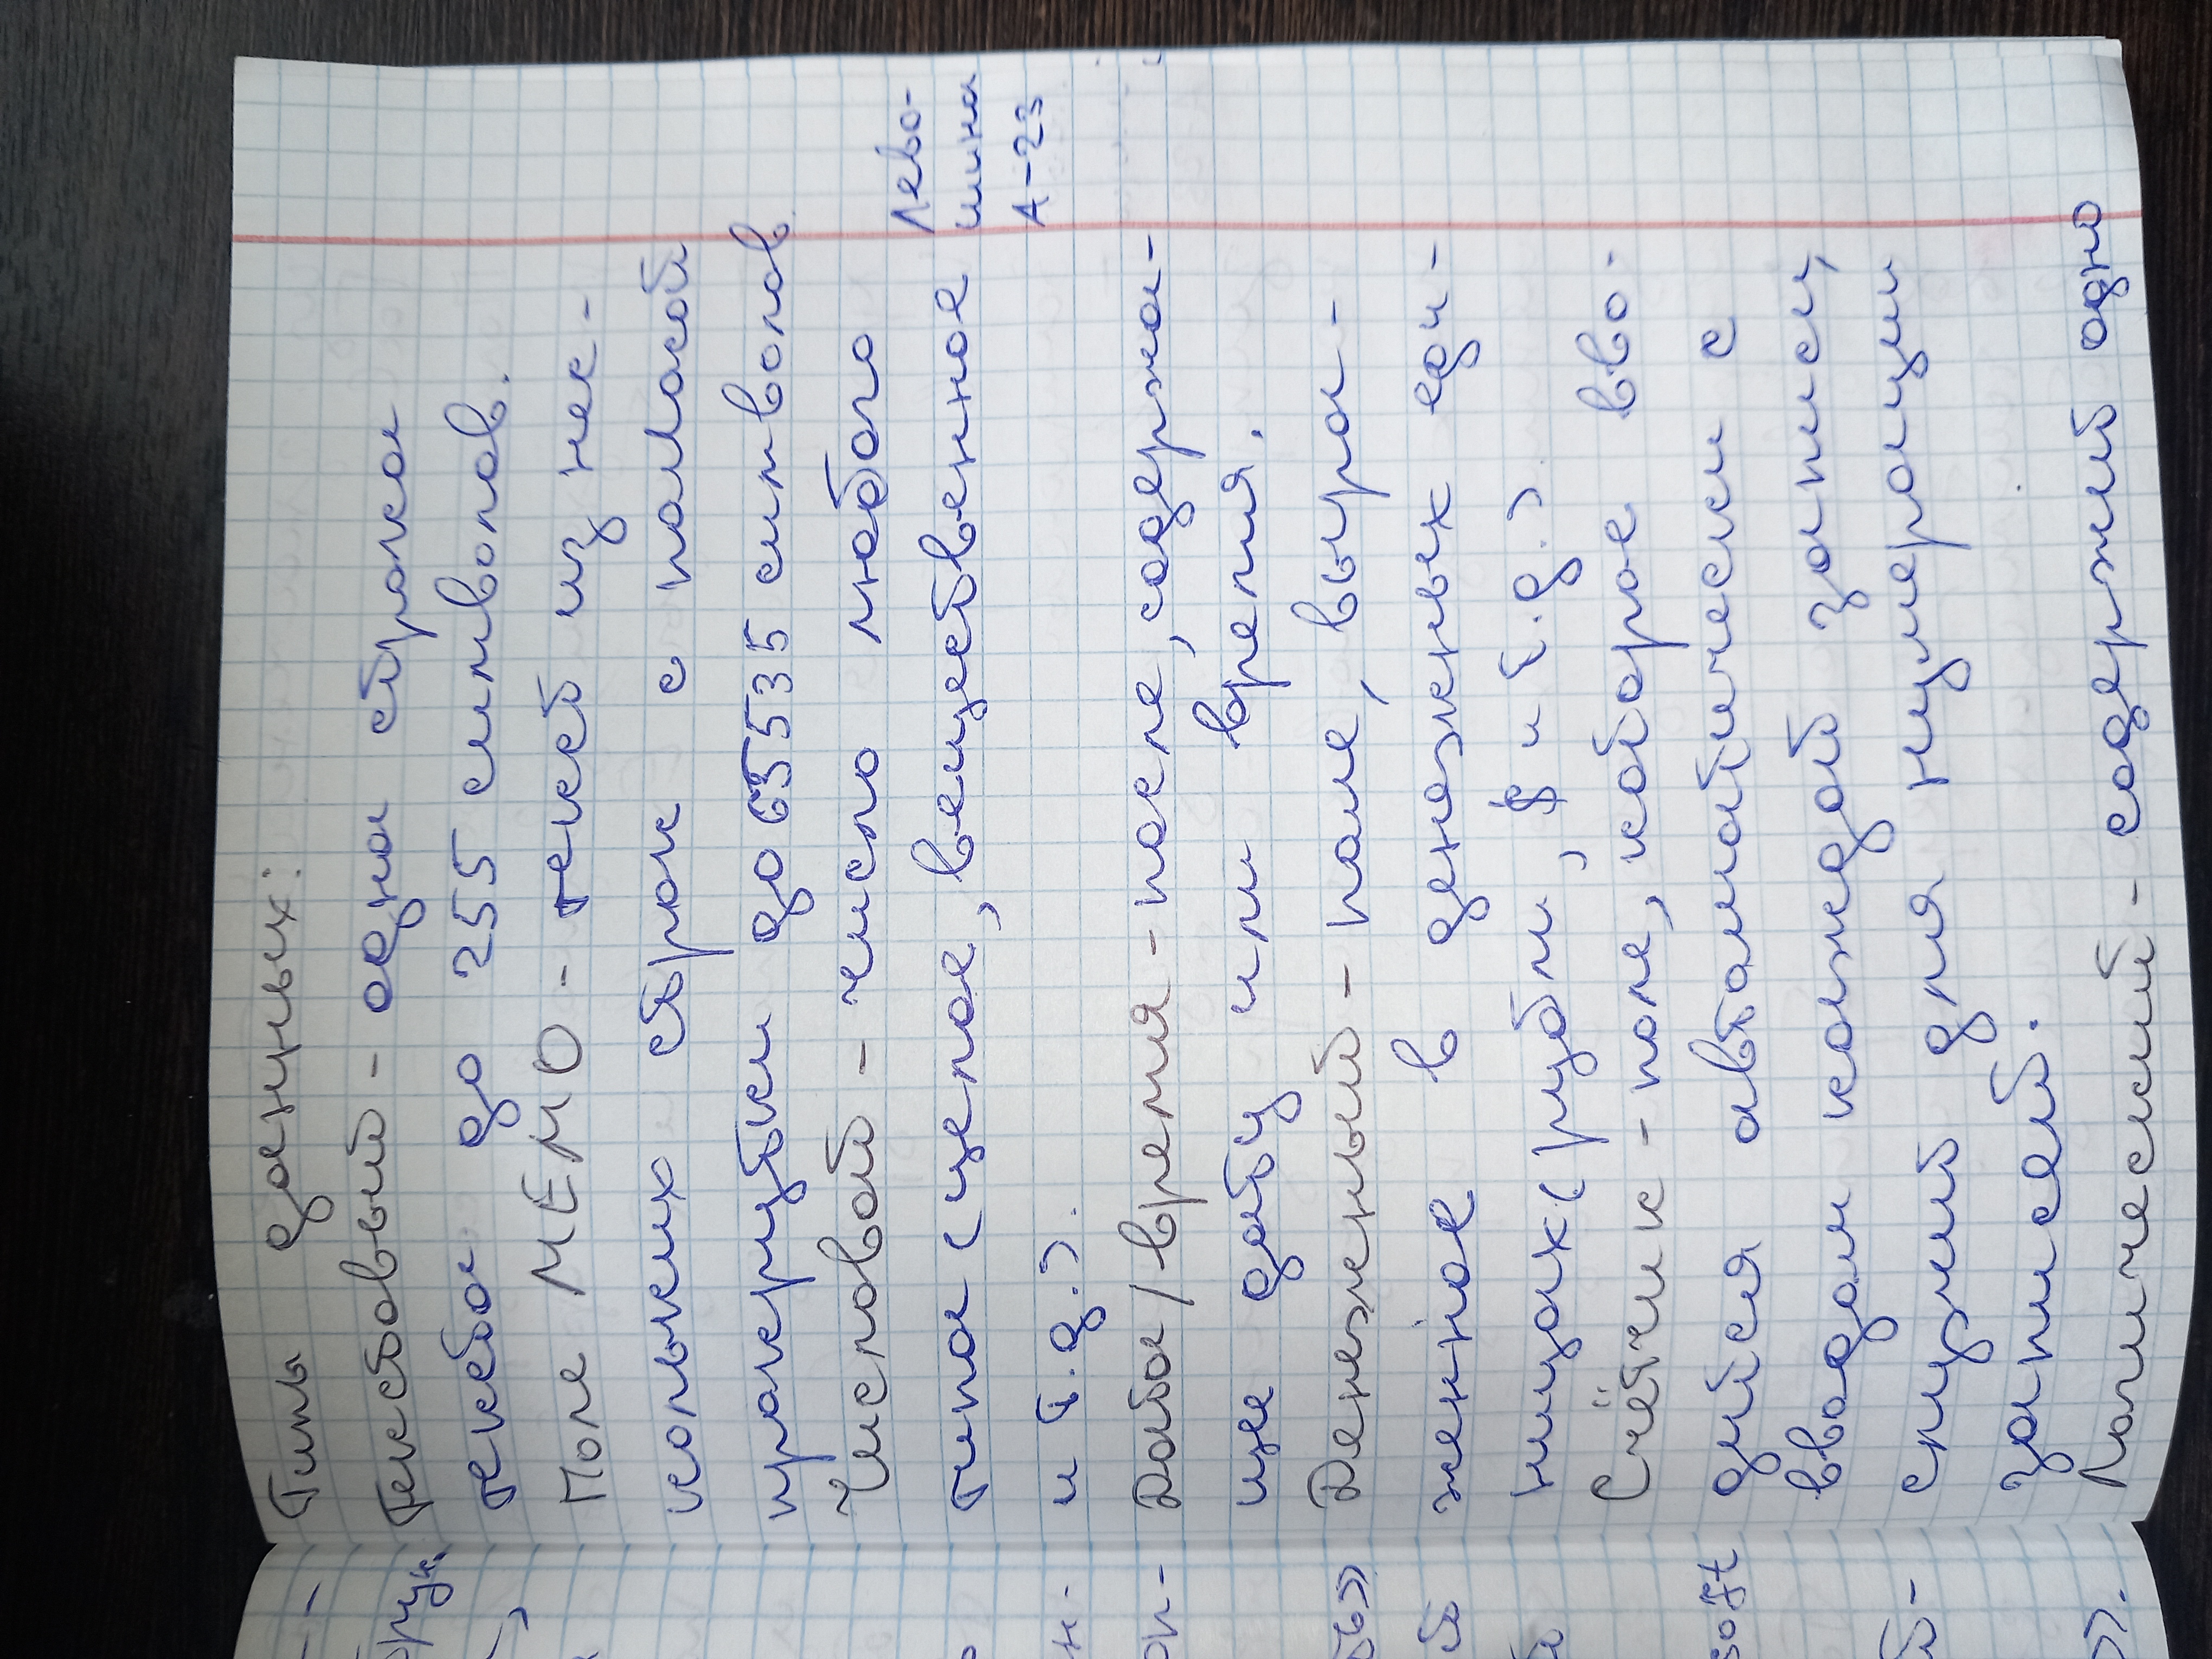 Типы данных:
Текстовый - одна строка
текста до 255 символов.
Поле МЕМО - текст из нес-
кольких строк с полосой
прокрутки до 65535 символов
Числовой - число любого
типа (целое, вещественное
и т.д.).
Дата/время - поле, содержа-
щее дату или время.
Денежный - поле, выра-
женное в денежных еди-
ницах (рубли, $ и т.д.)
Счётчик - поле, которое вво-
дится автоматически с
вводом каждой записи,
служит для нумерации
записей.
Логический - содержит одно
Лево-
шина
А-23